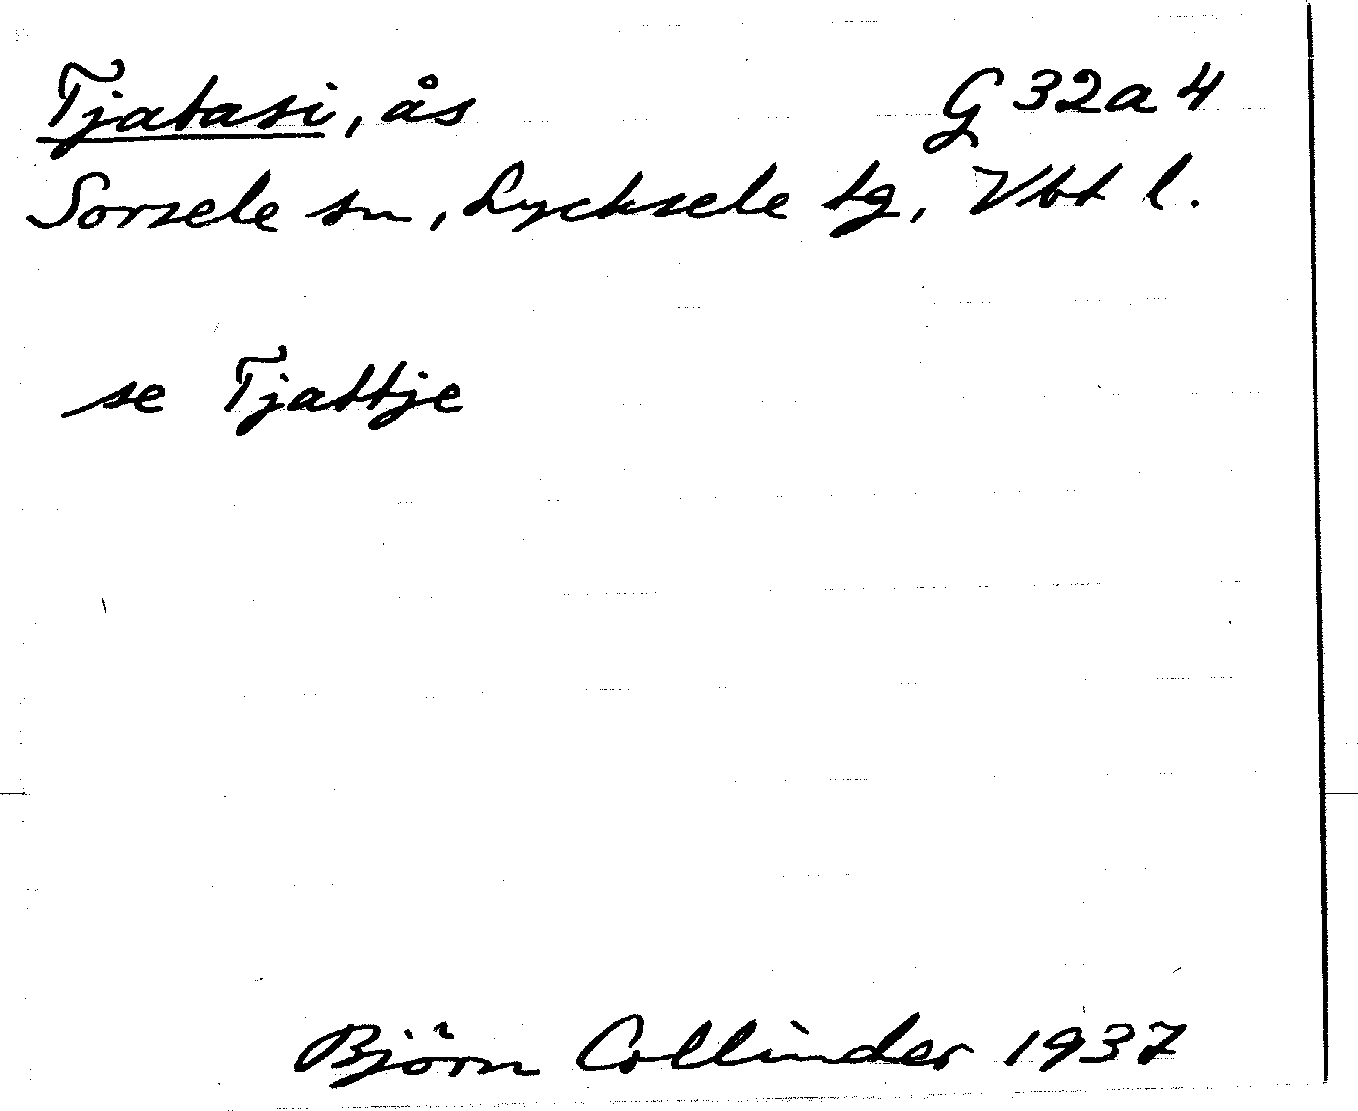 Tjatasi, ås G 32a 4
Sorsele sn, Lycksele tg, Vbt l.
se Tjattje
Björn Collinder 1937